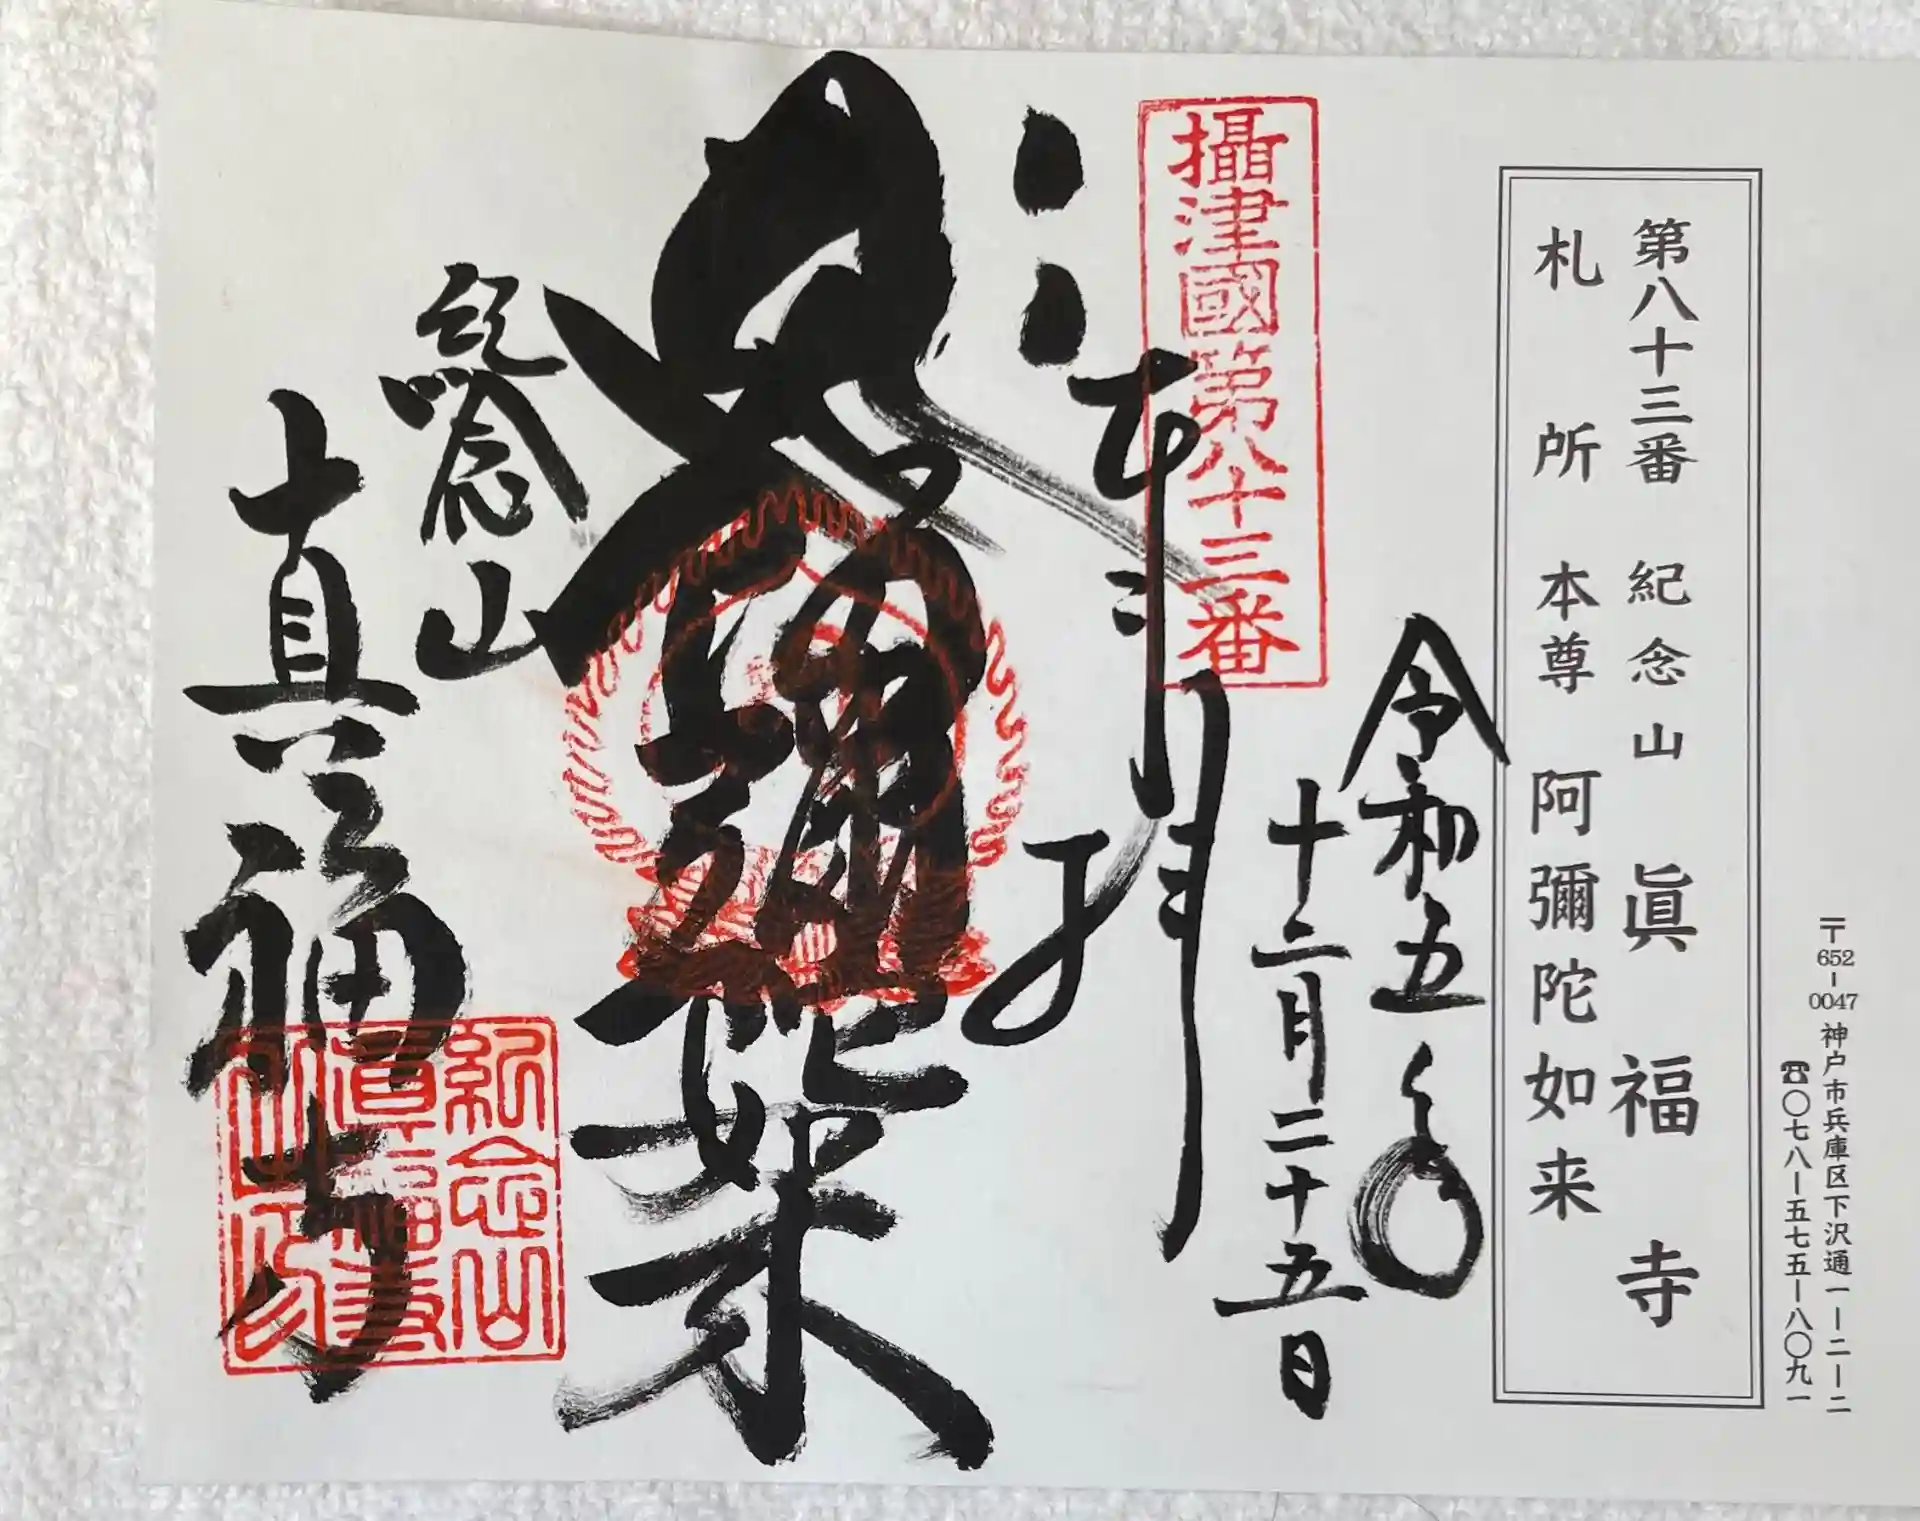 〒652-0047 神戸市兵庫区下沢通一ー二ー二
☎〇七八ー五七五ー八〇九一
第八十三番 紀念山 眞福寺
札所本尊 阿彌陀如来
令和五年
十二月二十五日
攝津國第八十三番
奉拜
彌陀如来
紀念山
真福寺
紀念山
真福寺